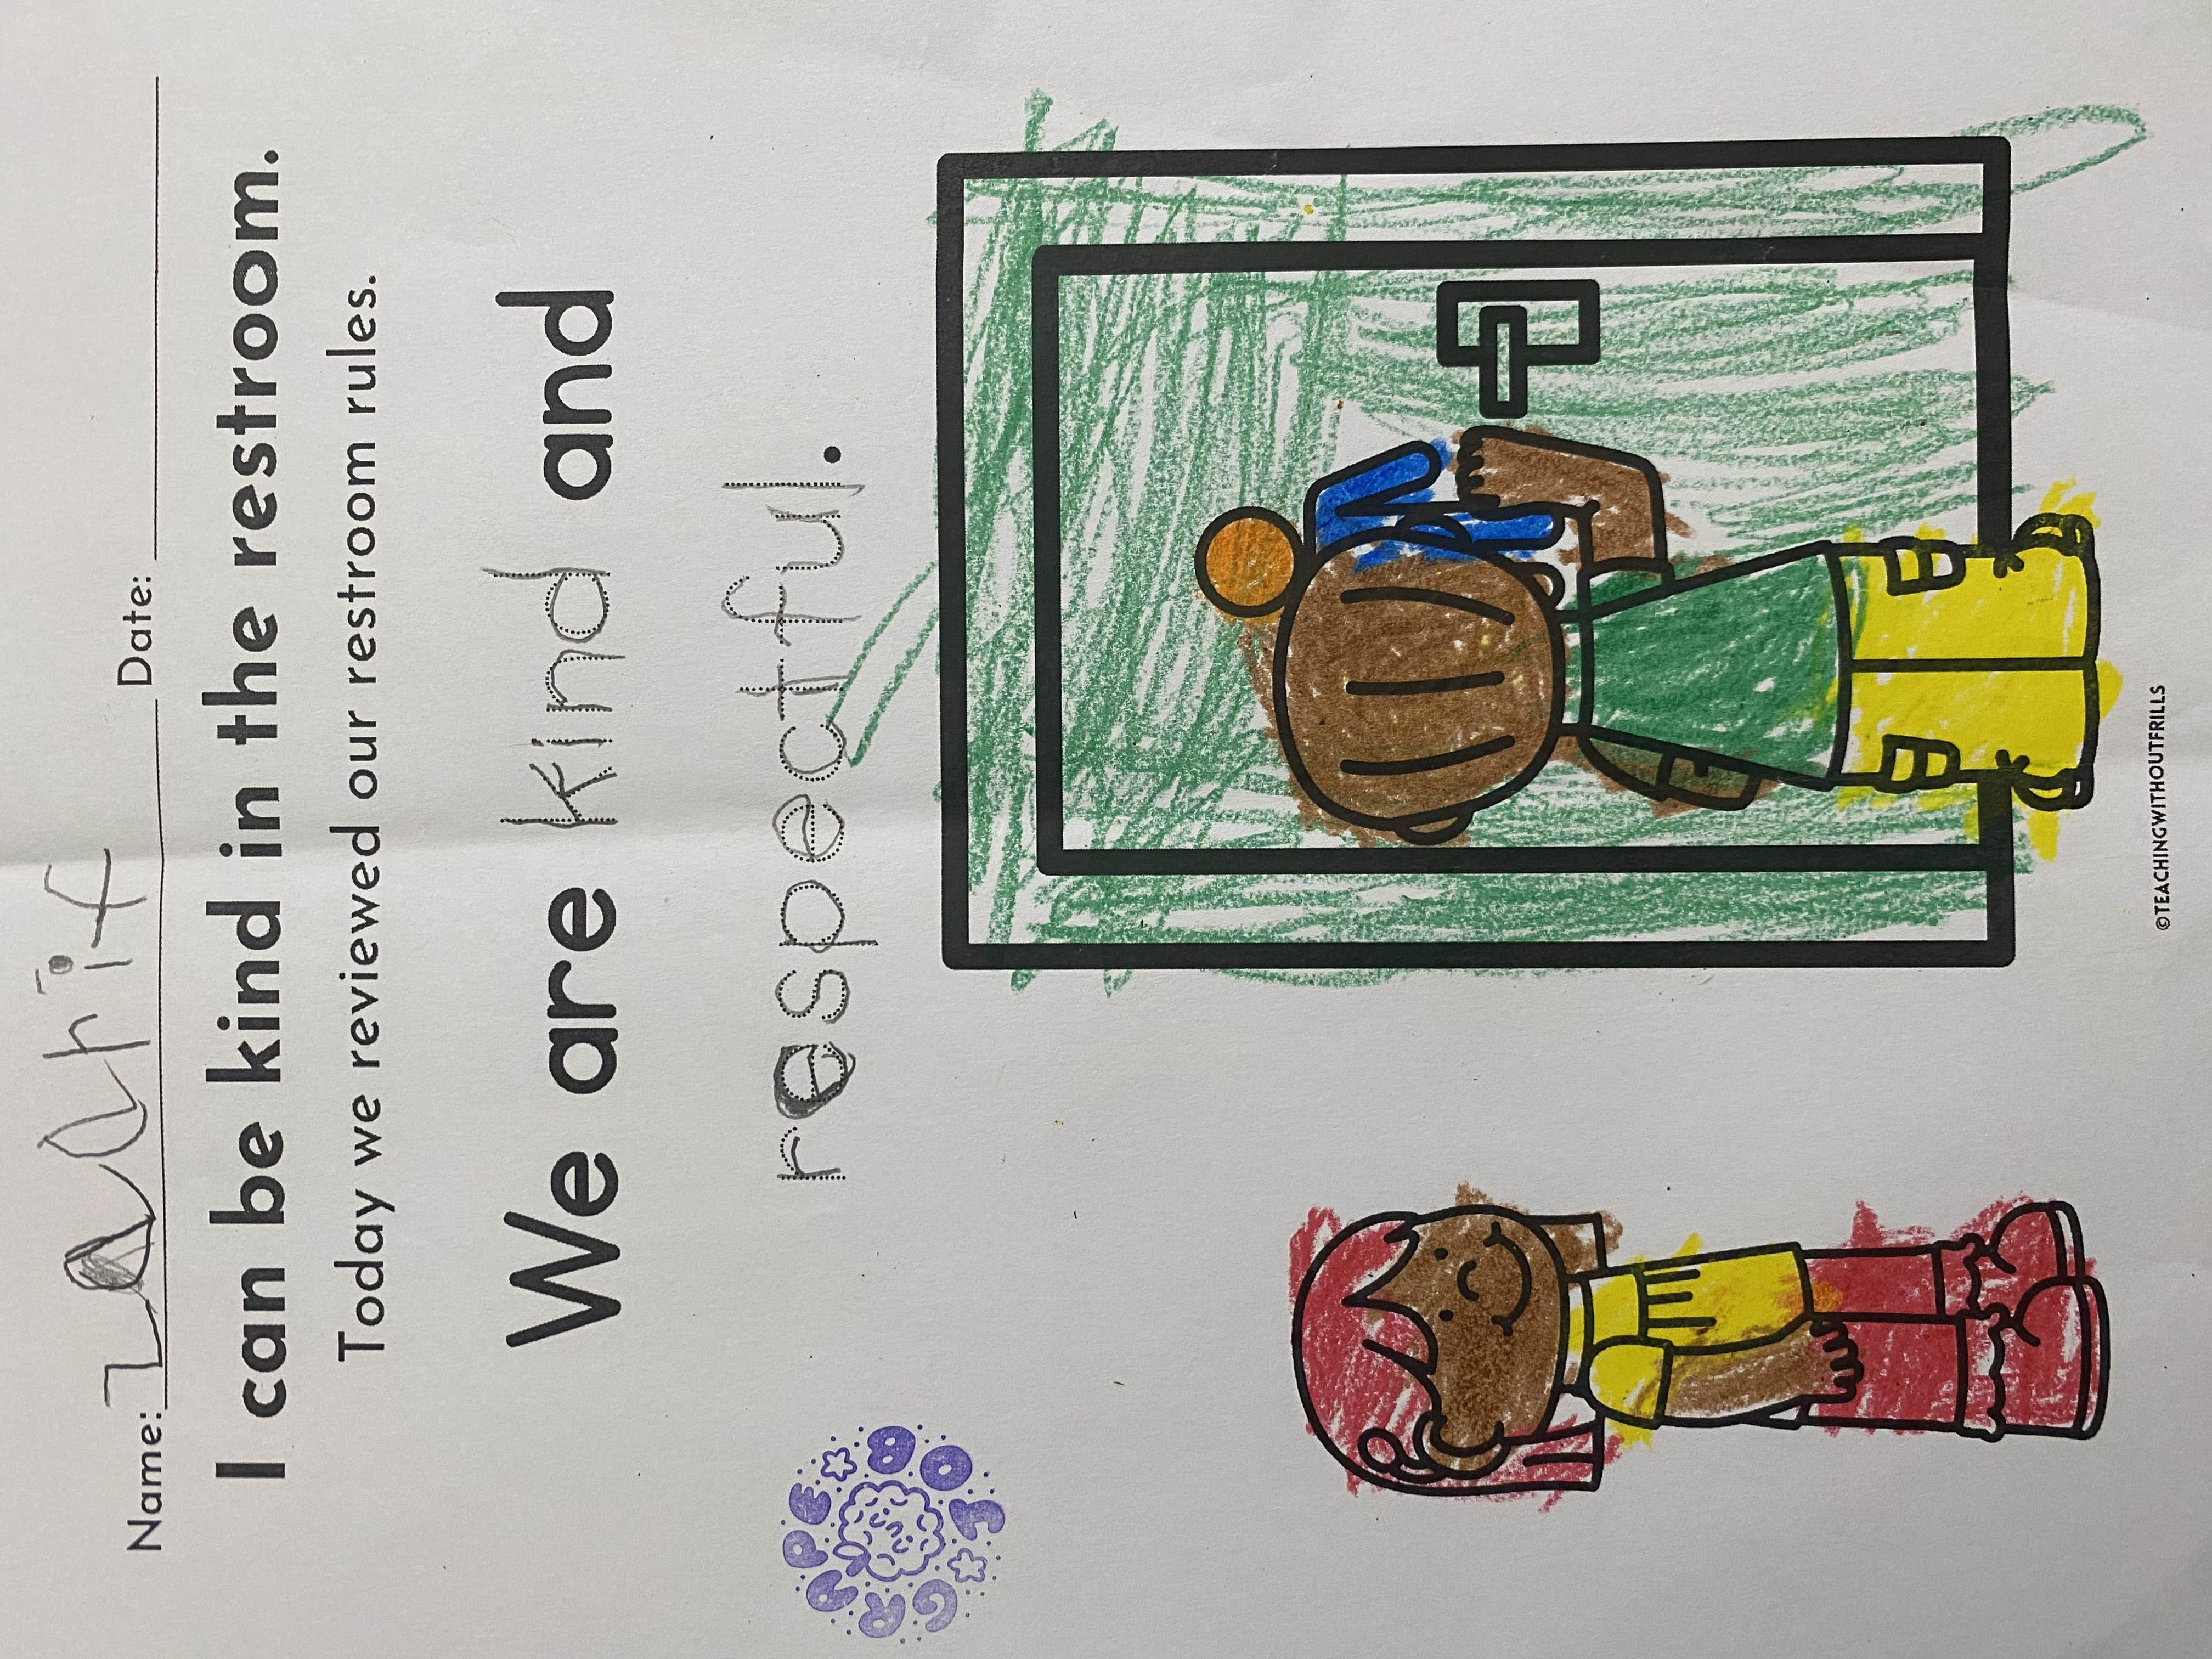 Name: Zachif Date:
I can be kind in the restroom.
Today we reviewed our restroom rules.
We are kind and
respectful.
GRAPE JOB
©TEACHINGWITHOUTFRILLS